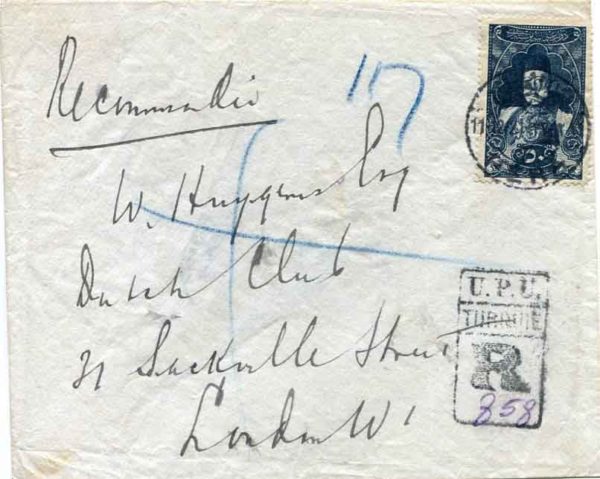 Recommandée
W. Huygens Esq
Dutch Club
31 Sackville Street
London W1
U.P.U.
TURQUIE
R
858
٥٠
11